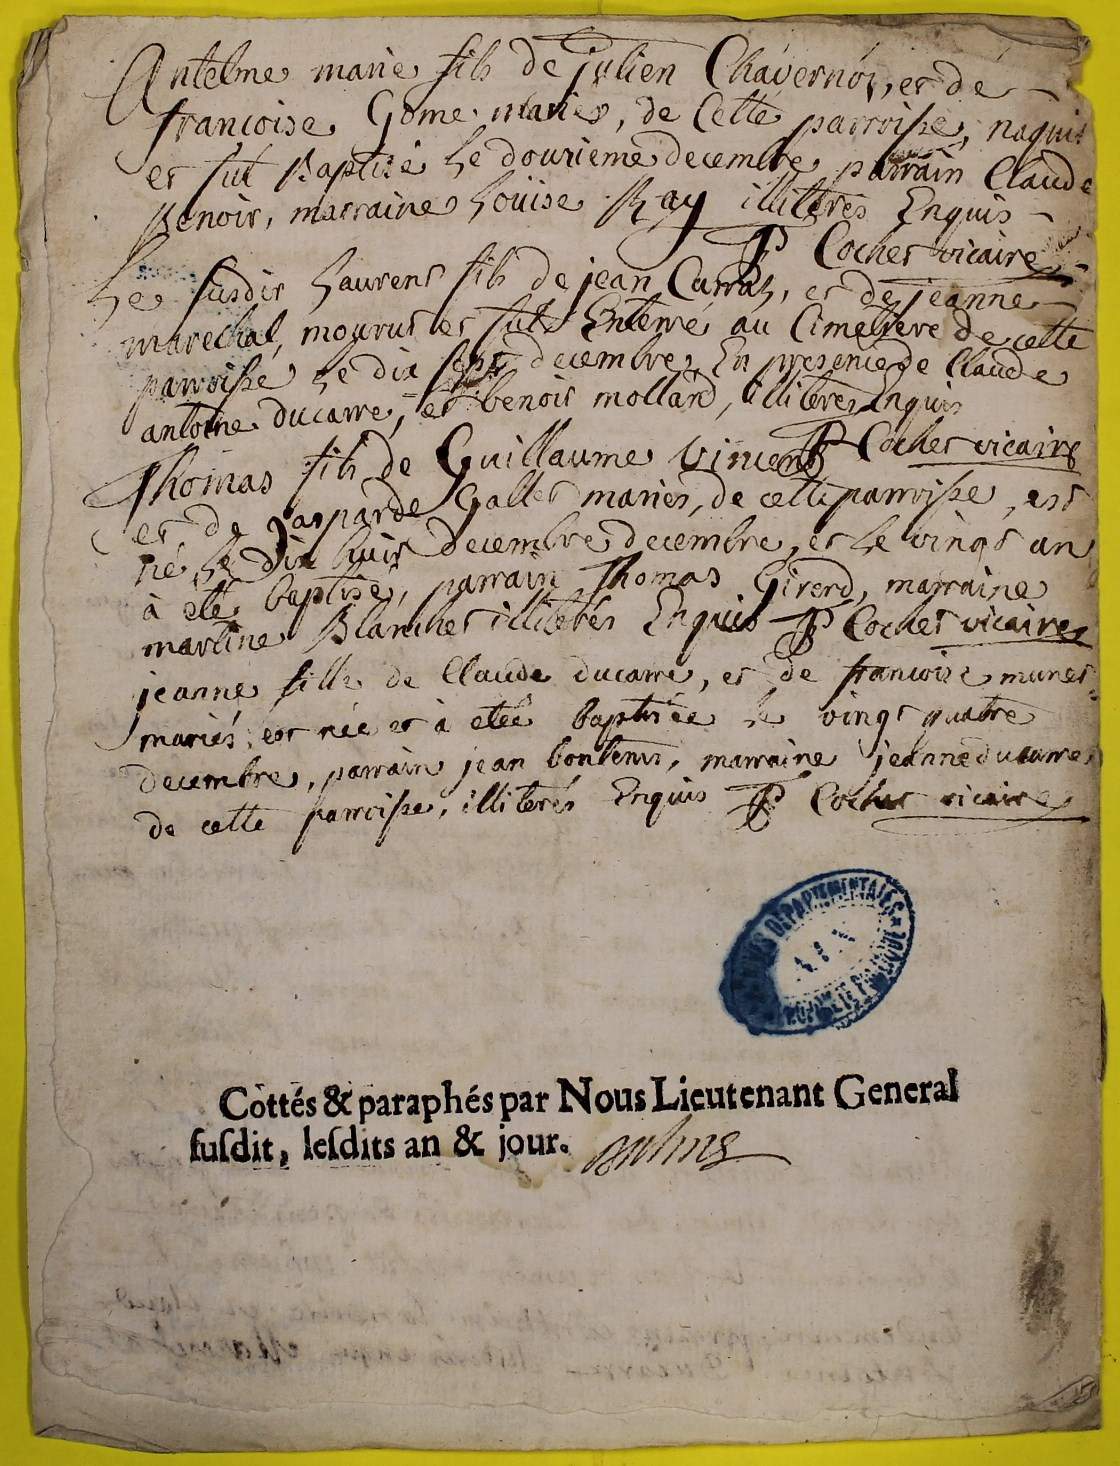 Antelme marie fils de julien Chavernós, et dé
francoise Gome mariés, de Cette parroisse, naquit
et fut Baptisé le douzieme decembre parrain Claude
Benoit, marraine Loüise Ray illiterés Enquis
P Cochet vicaire
Le susdit Laurent fils de jean Carraz, et de jeanne
marechal, mourut et fut Enterré au Cimetiere de cette
parroisse le dix sept decembre, En presence de Claude
antoine ducarre, et benoit mollard, illiterés Enquis
P Cochet vicaire
Thomas fils de Guillaume Vincent
et de Gasparde Gallet mariés, de cette parroisse, est
né le Dix huit decembre decembre, et le vingt un
à eté baptisé, parrain Thomas Girerd, marraine
martine Blanchet illiterés Enquis P Cochet vicaire
jeanne fille de Claude ducarre, et de francoise munet
mariés est née et à eteé baptisée le vingt quatre
decembre, parrain jean bontems, marraine jeanne ducarre
de cette parroisse, illiterés Enquis P Cochet vicaire
ARCHIVES DEPARTEMENTALES
Cottés & paraphés par Nous Lieutenant General
susdit, lesdits an & jour.